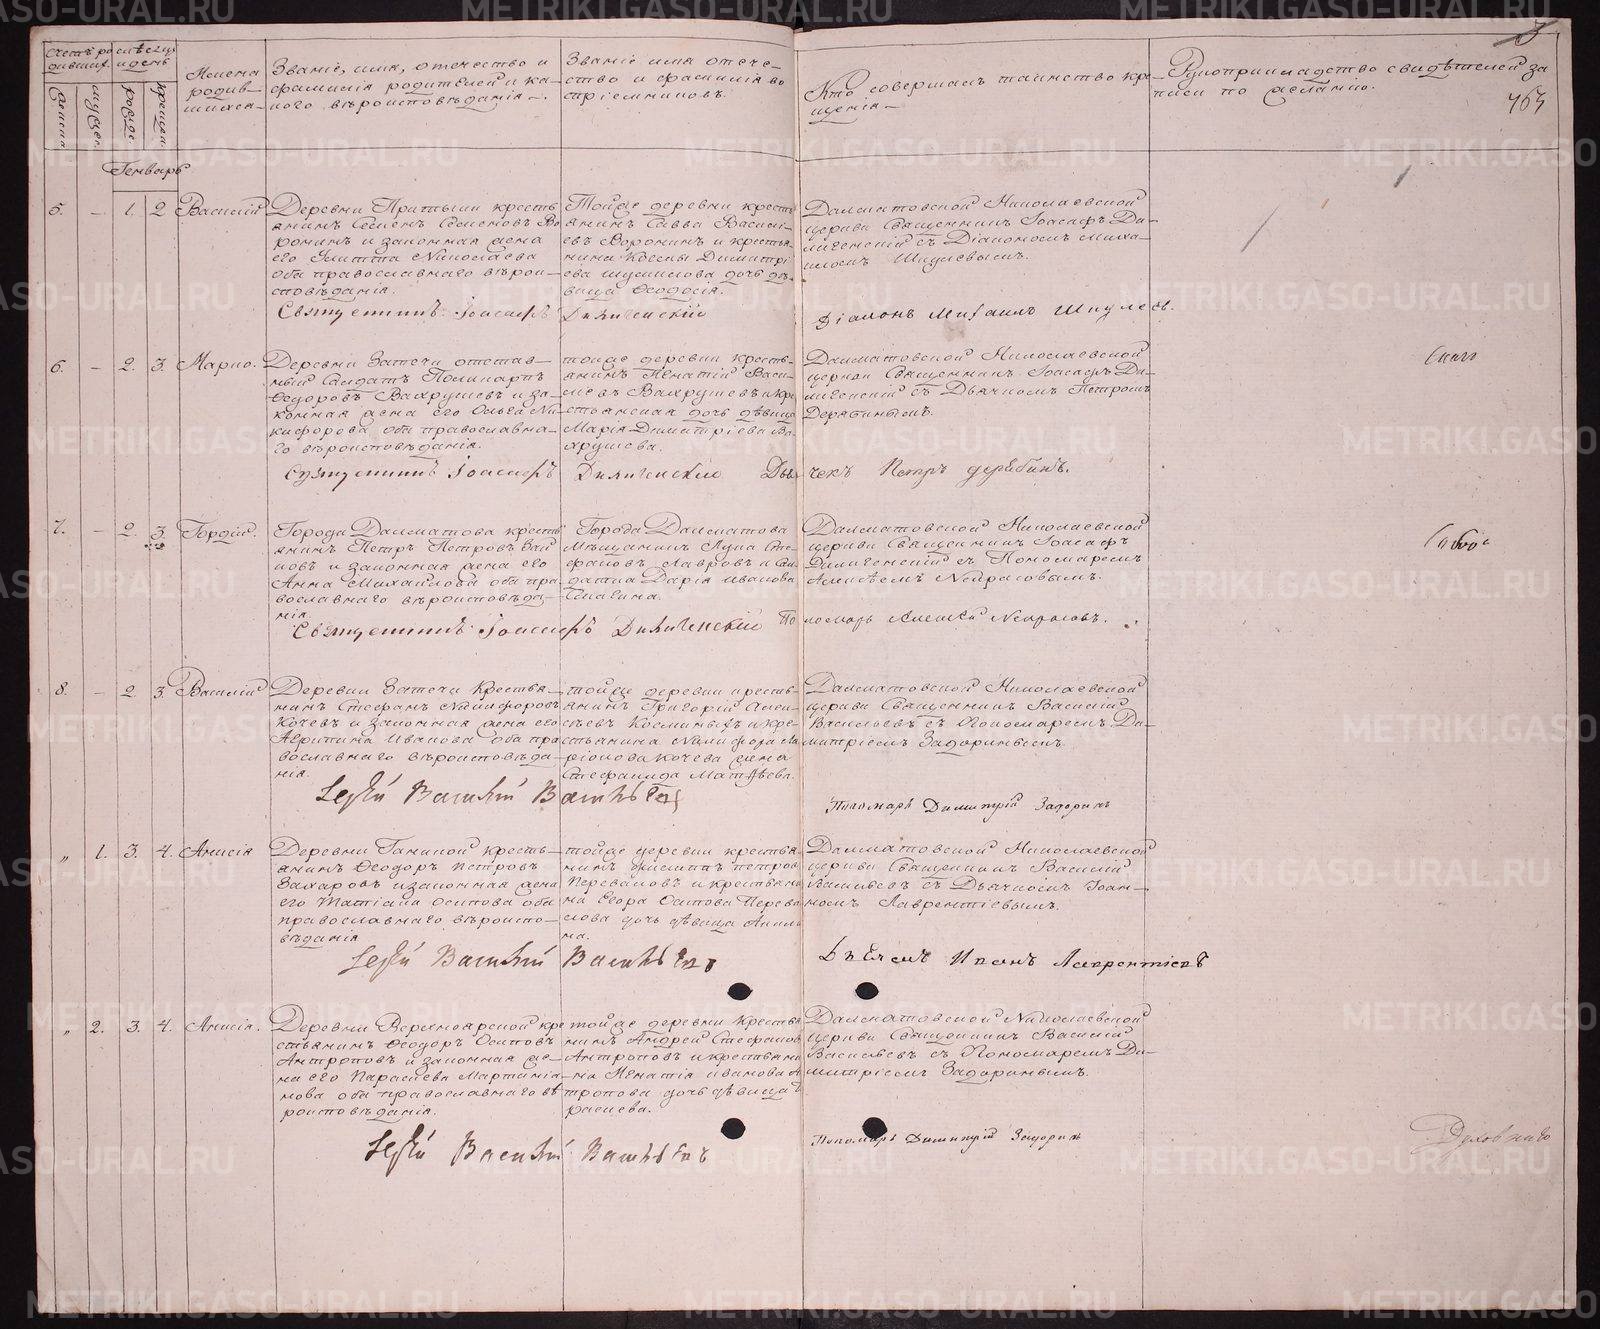 Счетъ родившихся
мѣсяцъ и день
Имена родившихся
Званіе, имя, отечество и фамилія родителей и какого вѣроисповѣданія.
Званіе имя отечество и фамилія воспріемниковъ.
Кто совершалъ таинство крещенія
Рукоприкладство свидѣтелей записи по желанію.
3
463
Генварь
5. – 1. 2 Василій
Деревни Притыки кресть
янинъ Семенъ Семеновъ Во
ронинъ и законная жена
его Улитта Николаева
оба православнаго вѣрои
сповѣданія.
Тойже деревни кресть
янинъ Савва Василь
евъ Воронинъ и крестья
нина Космы Димитрі
ева Шумилова дочь дѣ
вица Ѳеодосія.
Далматовской Николаевской
церкви Священникъ Іоасафъ Ди
лигенскій съ Діакономъ Миха
иломъ Шкулевымъ.
Священникъ Іоасафъ Дилигенскій
Діаконъ Михаилъ Шкулевъ.
6. – 2. 3. Марко.
Деревни Затечи отстав
ный Солдатъ Поликарпъ
Ѳедоровъ Вахрушевъ и за
конная жена его Ольга Ни
кифорова оба православна
го вѣроисповѣданія.
тойже деревни кресть
янинъ Игнатій Васи
льевъ Вахрушевъ и кре
стьянская дочь дѣвица
Марія Димитріева Ва
хрушева.
Далматовской Николаевской
церкви Священникъ Іоасафъ Ди
лигенскій съ Дьячкомъ Петромъ
Дерябинымъ.
Священникъ Іоасафъ Дилигенскій Дья
чекъ Петръ Дерябинъ.
7. – 2. 3. Гордій.
Города Далматова кресть
янинъ Петръ Петровъ Зай
ковъ и законная жена его
Анна Михайлова оба пра
вославнаго вѣроисповѣда
нія.
Города Далматова
Мѣщанинъ Лука Сте
фановъ Лавровъ и Сол
датка Дарія Иванова
Далматовской Николаевской
церкви Священникъ Іоасафъ
Дилигенскій съ Пономаремъ
Алексѣемъ Некрасовымъ.
Священникъ Іоасафъ Дилигенскій По
номарь Алексѣй Некрасовъ.
8. – 2. 3. Василій
Деревни Затечи Крестья
нинъ Стефанъ Никифоровъ
Кочевъ и законная жена его
Агрипина Иванова оба пра
вославнаго вѣроисповѣда
нія.
тойже деревни кресть
янинъ Григорій Алек
сѣевъ и кре
стьянина Никифора Ла
ріонова Кочева жена
Стефанида Матѳѣева.
Далматовской Николаевской
церкви Священникъ Василій
Васильевъ съ Пономаремъ Ди
митріемъ Задоринымъ.
Іерей Василій Васильевъ
Пономарь Димитрій Задоринъ
„ 1. 3. 4. Анисія
Деревни Ганиной кресть
янинъ Ѳеодоръ Петровъ
Захаровъ и законная жена
его Татіана Осипова оба
православнаго вѣроиспо
вѣданія
тойже деревни крестья
нинъ Петровъ
Переваловъ и крестьяни
на Егора Осипова Перева
лова дочь дѣвица Акили
на.
Далматовской Николаевской
церкви Священникъ Василій
Васильевъ съ Дьячкомъ Іоан
номъ Лаврентіевымъ.
Іерей Василій Васильевъ
Дьячекъ Иванъ Лаврентіевъ
„ 2. 3. 4. Анисія.
Деревни Верхноярской кре
стьянинъ Ѳеодоръ Осиповъ
Антроповъ и законная же
на его Параскева Мартиніа
нова оба православнаго вѣ
роисповѣданія.
тойже деревни крестья
нинъ Андрей Стефановъ
Антроповъ и крестьяни
на Игнатія Иванова Ан
тропова дочь дѣвица Па
раскева.
Далматовской Николаевской
церкви Священникъ Василій
Васильевъ съ Пономаремъ Ди
митріемъ Задоринымъ.
Іерей Василій Васильевъ
Пономарь Димитрій Задоринъ
Духовнаго
METRIKI.GASO-URAL.RU